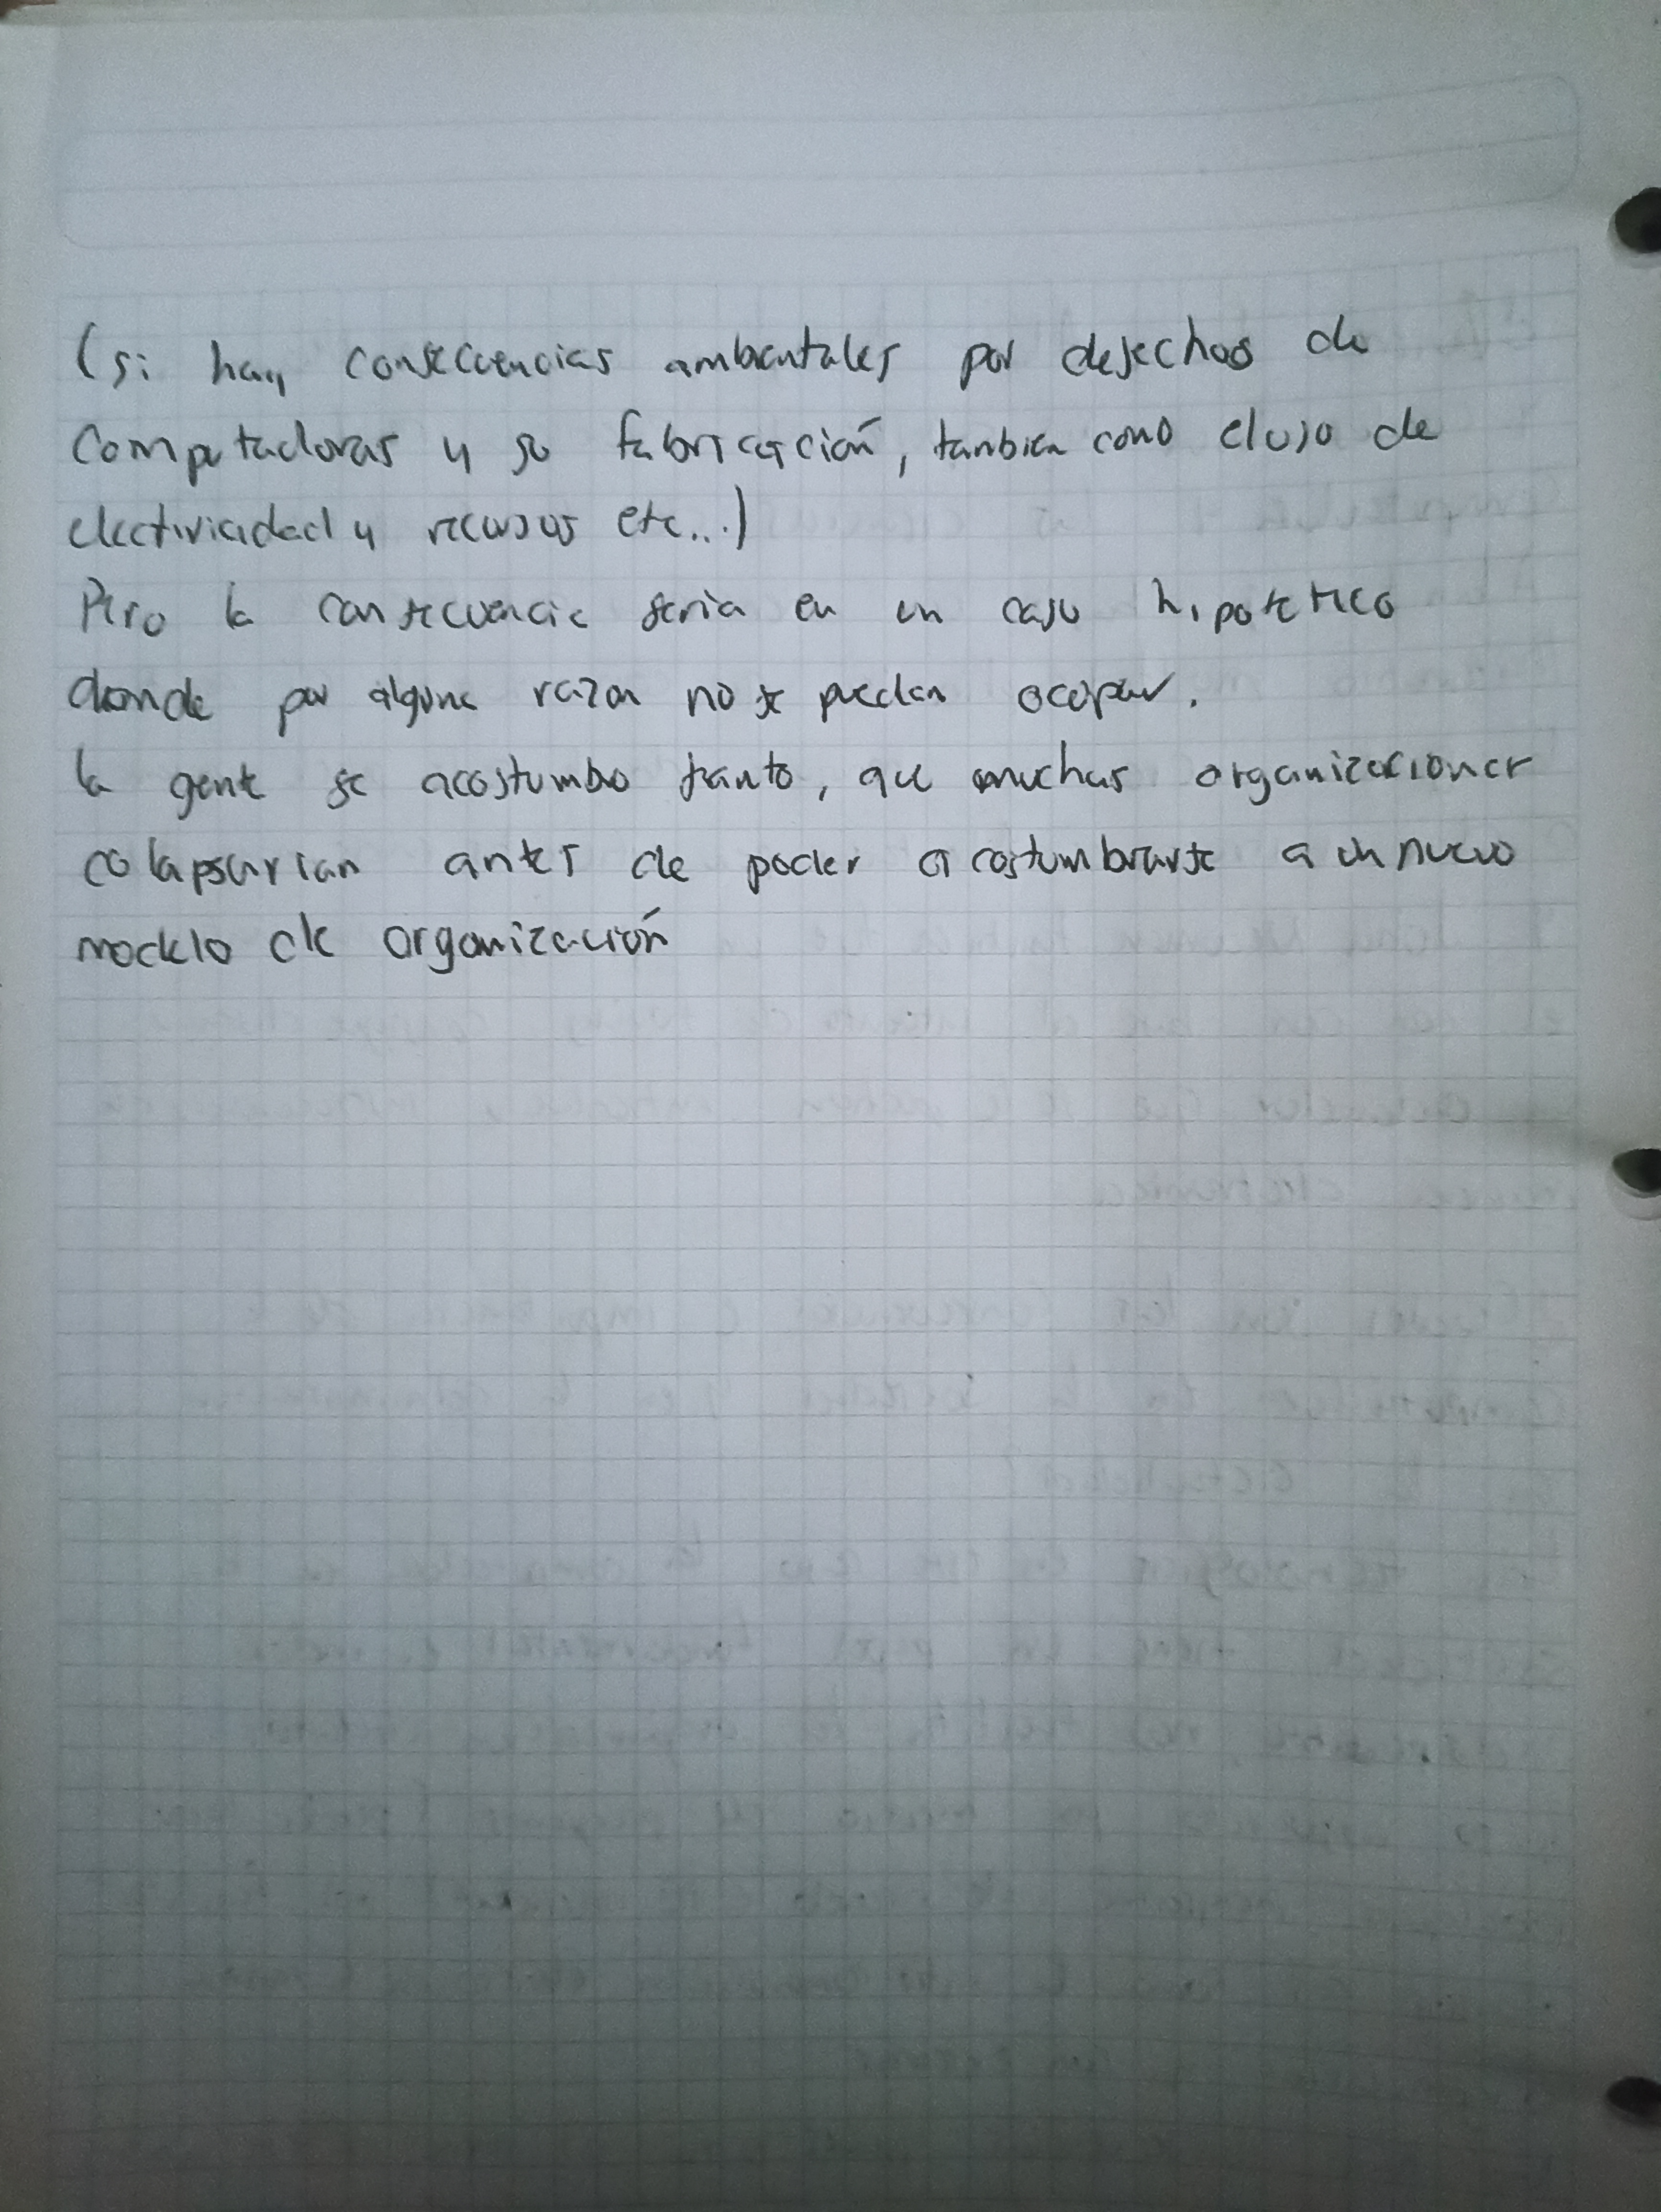 (si hay consecuencias ambientales por desechos de
Computadoras y su fabricación, tambien como el uso de
electricidad y recursos etc...)
Pero la consecuencia seria en un caso hipotetico
donde por alguna razon no se puedan ocupar.
la gente se acostumbo tanto, que muchas organizaciones
colapsarian antes de poder acostumbrarse a un nuevo
modelo de organización